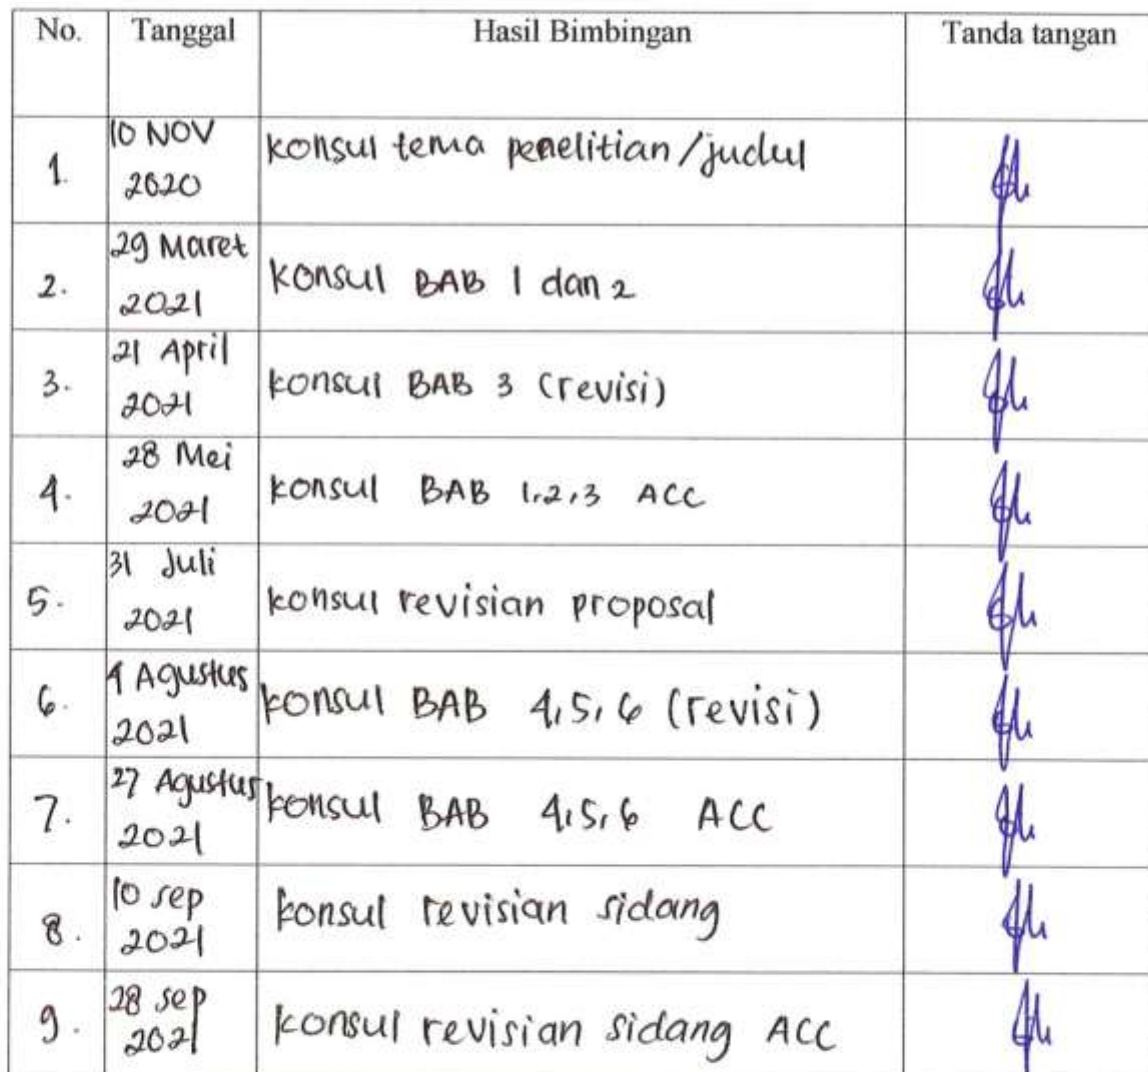 No. Tanggal Hasil Bimbingan Tanda tangan
1. 10 NOV 2020 konsul tema penelitian/judul
2. 29 Maret 2021 konsul BAB 1 dan 2
3. 21 April 2021 konsul BAB 3 (revisi)
4. 28 Mei 2021 konsul BAB 1,2,3 ACC
5. 31 Juli 2021 konsul revisian proposal
6. 4 Agustus 2021 konsul BAB 4,5,6 (revisi)
7. 27 Agustus 2021 konsul BAB 4,5,6 ACC
8. 10 sep 2021 konsul revisian sidang
9. 28 sep 2021 konsul revisian sidang ACC